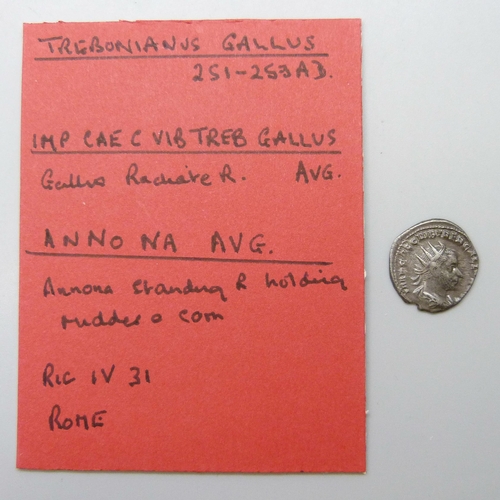 TREBONIANUS GALLUS
251-253 AD.
IMP CAE C VIB TREB GALLUS
Gallus Radiate R. AVG.
ANNONA AVG.
Annona standing R holding
rudder o corn
RIC IV 31
ROME